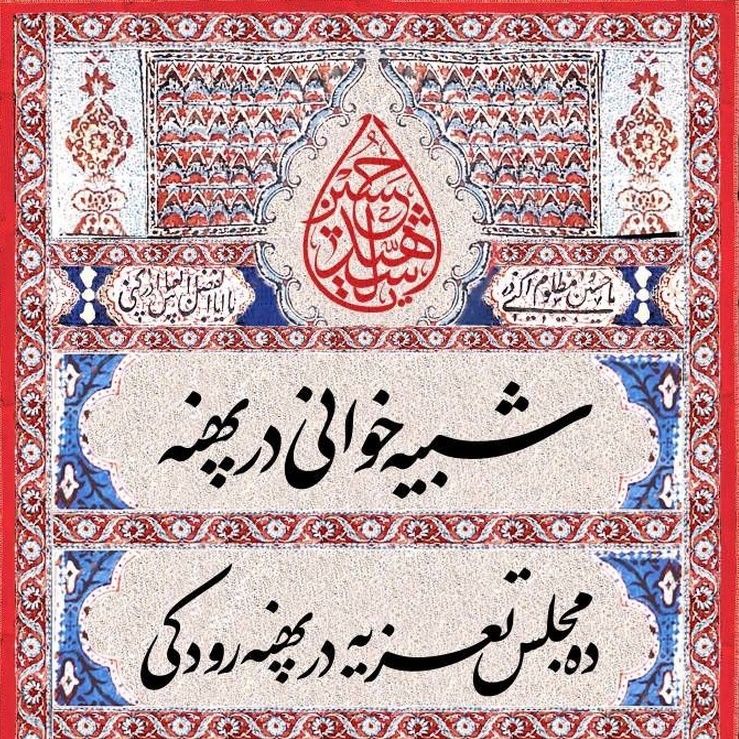 یا حسین شهید
یا حسین مظلوم ادرکنی
یا ابا الفضل العباس ادرکنی
شبیه خوانی در پهنه
ده مجلس تعزیه در پهنه رودکی